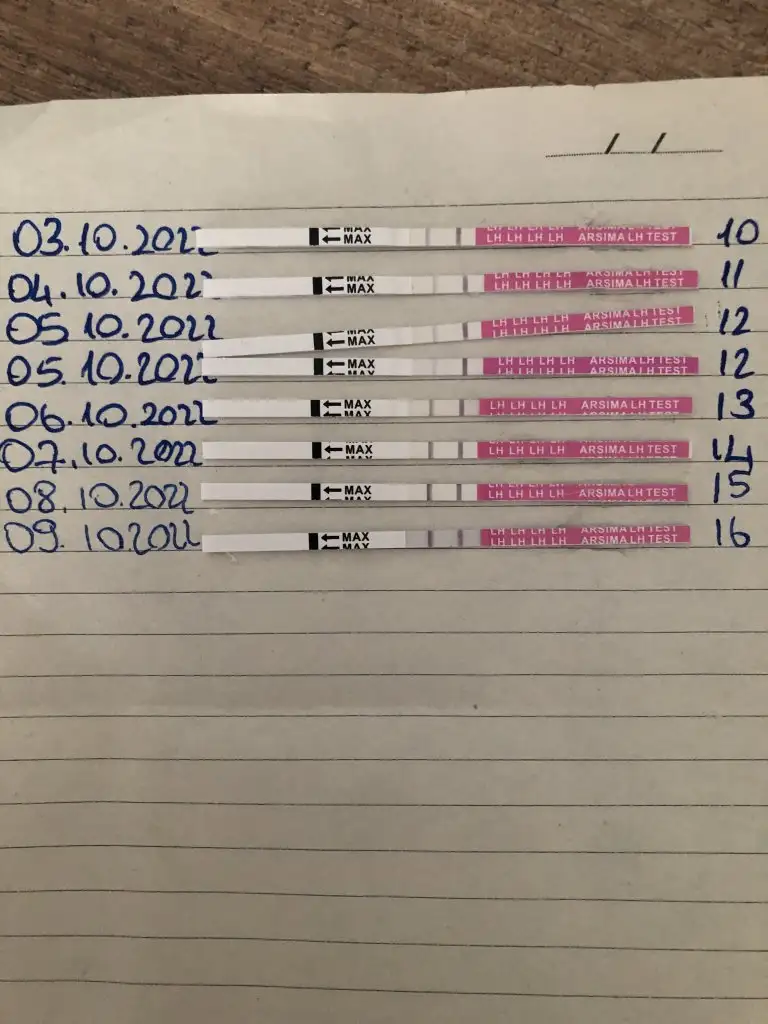 / /
03.10.2022 ← MAX LH LH LH LH ARSIMA LH TEST 10
04.10.2022 ← MAX LH LH LH LH ARSIMA LH TEST 11
05 10.2022 ← MAX LH LH LH LH ARSIMA LH TEST 12
05.10.2022 ← MAX LH LH LH LH ARSIMA LH TEST 12
06.10.2022 ← MAX LH LH LH LH ARSIMA LH TEST 13
07.10.2022 ← MAX LH LH LH LH ARSIMA LH TEST 14
08.10.2022 ← MAX LH LH LH LH ARSIMA LH TEST 15
09.10.2022 ← MAX LH LH LH LH ARSIMA LH TEST 16